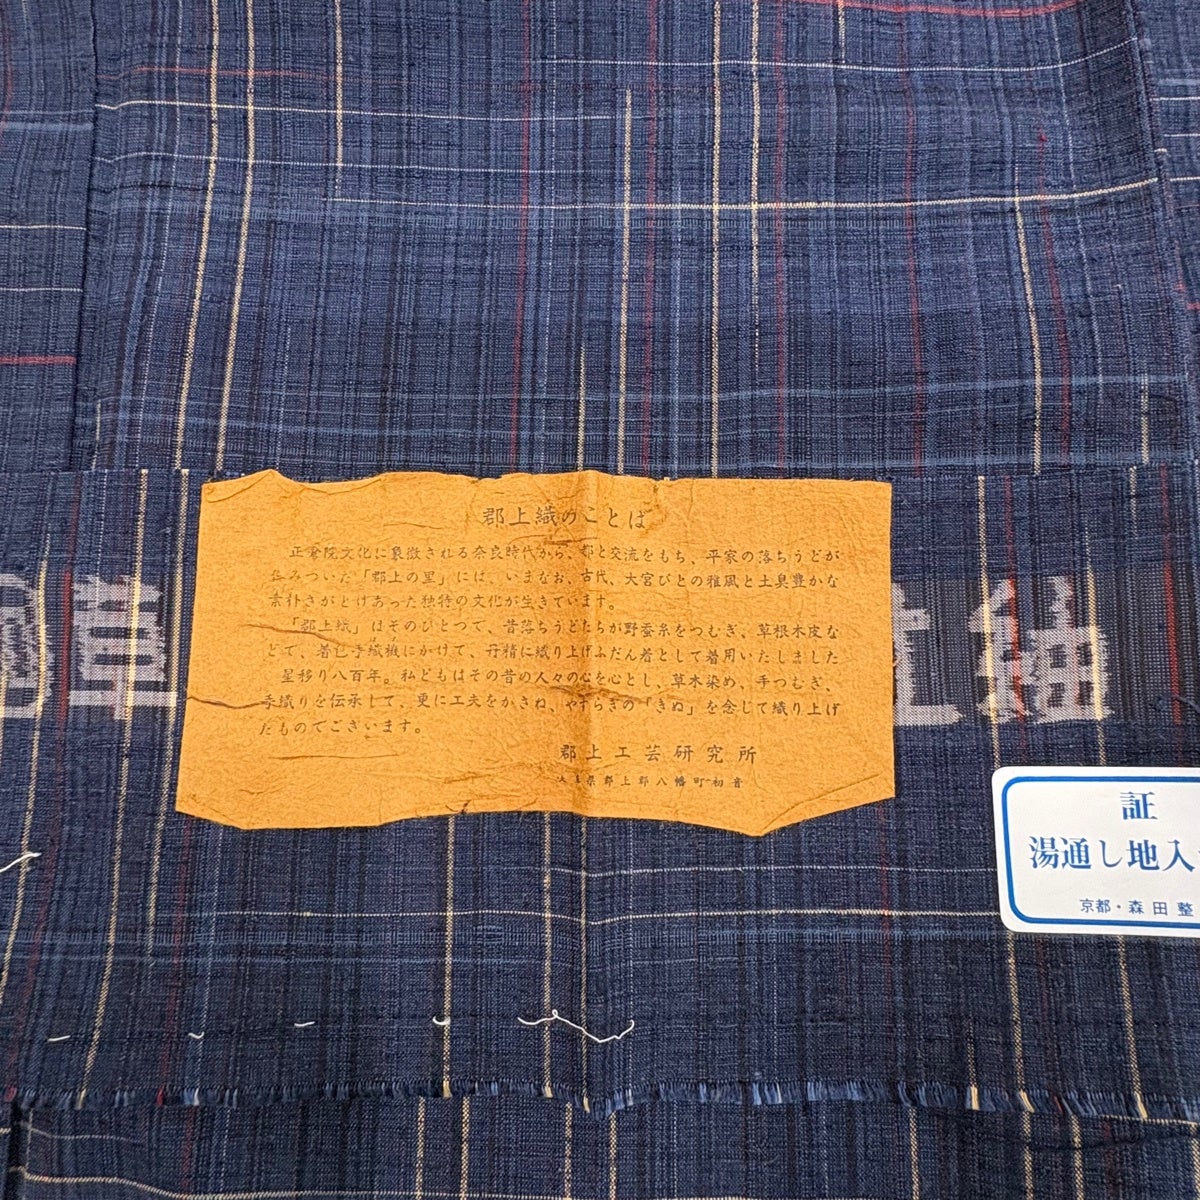 郡上織のことば
正倉院文化に象徴される奈良時代から、都と交流をもち、平家の落ちうどが
住みついた「郡上の里」には、いまなお、古代、大宮びとの雅風と土臭豊かな
素朴さがとけあった独特の文化が生きています。
「郡上織」はそのひとつで、昔落ちうどたちが野蚕糸をつむぎ、草根木皮な
どで、着色手織機にかけて、丹精に織り上げふだん着として着用いたしました
星移り八百年。私どもはその昔の人々の心を心とし、草木染め、手つむぎ、
手織りを伝承して、更に工夫をかさね、やすらぎの「きぬ」を念じて織り上げ
たものでございます。
郡上工芸研究所
県郡上郡八幡町初音
草
紬
証
湯通し地入
京都・森田整